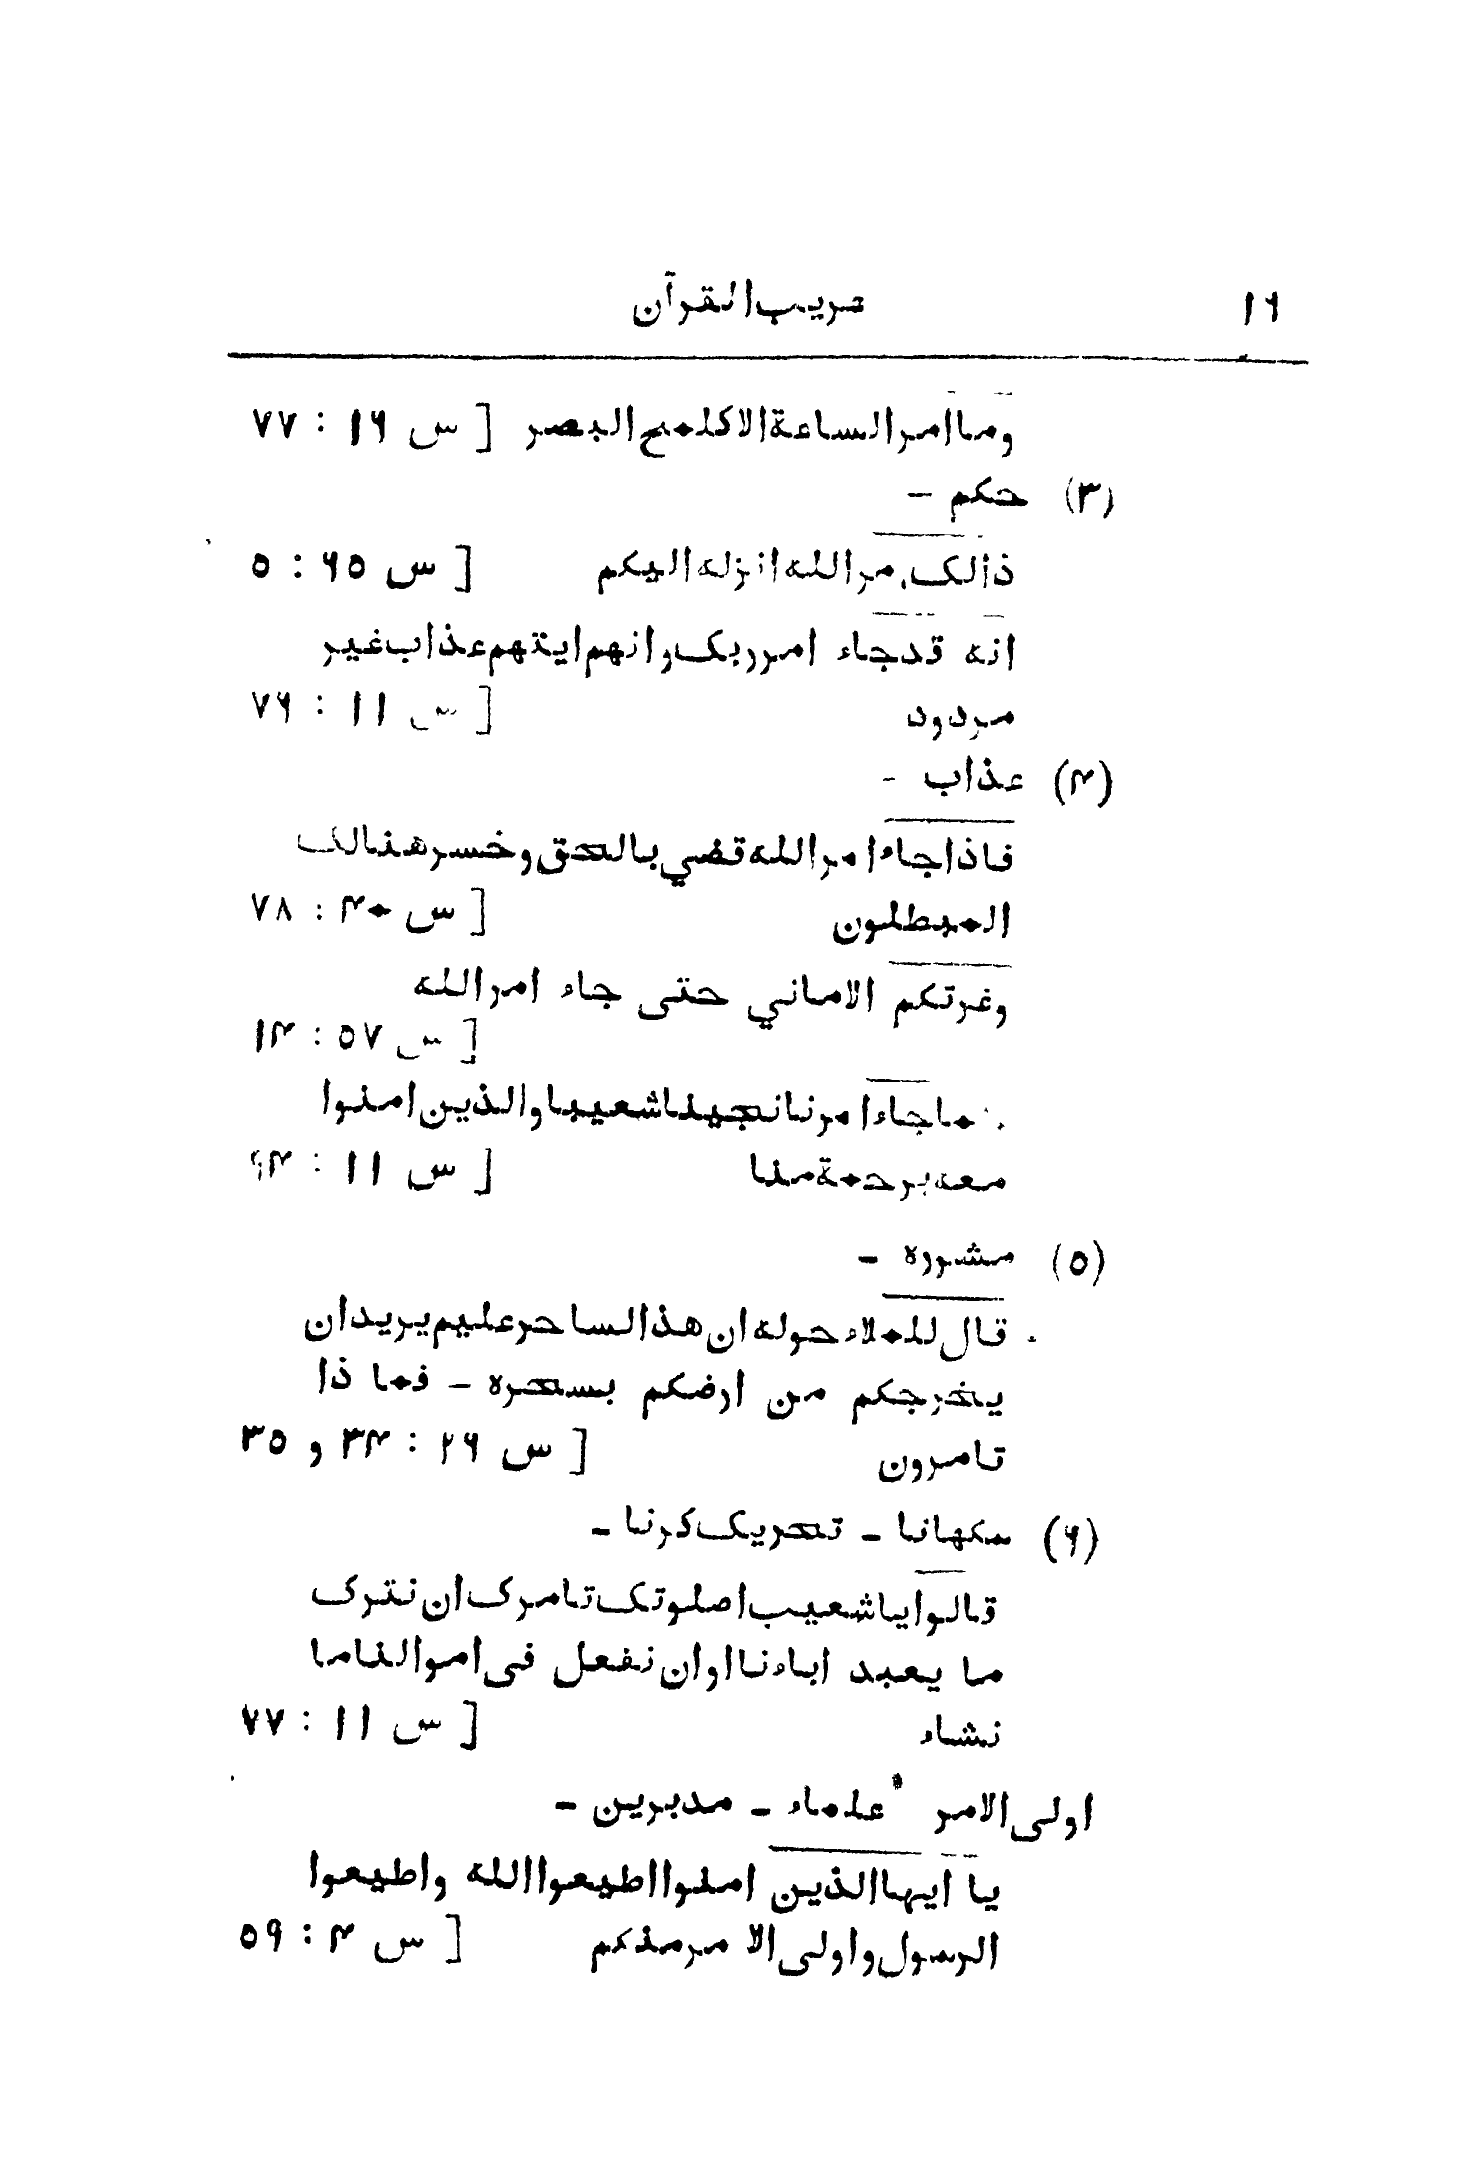 ۱۶ غریب القرآن
وما امر الساعة الا کلمح البصر [ س ۱۶ : ۷۷
(۳) حکم -
ذالک امر الله انزله الیکم [ س ۶۵ : ۵
انه قد جاء امر ربک و انهم ایتهم عذاب غیر
مردود [ س ۱۱ : ۷۶
(۴) عذاب -
فاذا جاء امر الله قضي بالحق و خسر هنالک
المبطلون [ س ۴۰ : ۷۸
وغرتکم الاماني حتی جاء امر الله
[ س ۵۷ : ۱۴
جاء امرنا نجینا شعیبا والذین امنوا
معه برحمة منا [ س ۱۱ :
(۵) مشوره -
قال للملاء حوله ان هذا لساحر علیم یرید ان
یخرجکم من ارضکم بسحره - فما ذا
تامرون [ س ۲۶ : ۳۴ و ۳۵
(۶) سکهانا - تحریک کرنا -
قالوا یا شعیب اصلوتک تامرک ان نترک
ما یعبد اباءنا او ان نفعل فی اموالنا ما
نشاء [ س ۱۱ : ۷۷
اولی الامر علماء - مدبرین -
یا ایها الذین امنوا اطیعوا الله واطیعوا
الرسول و اولی الا مر منکم [ س ۴ : ۵۹